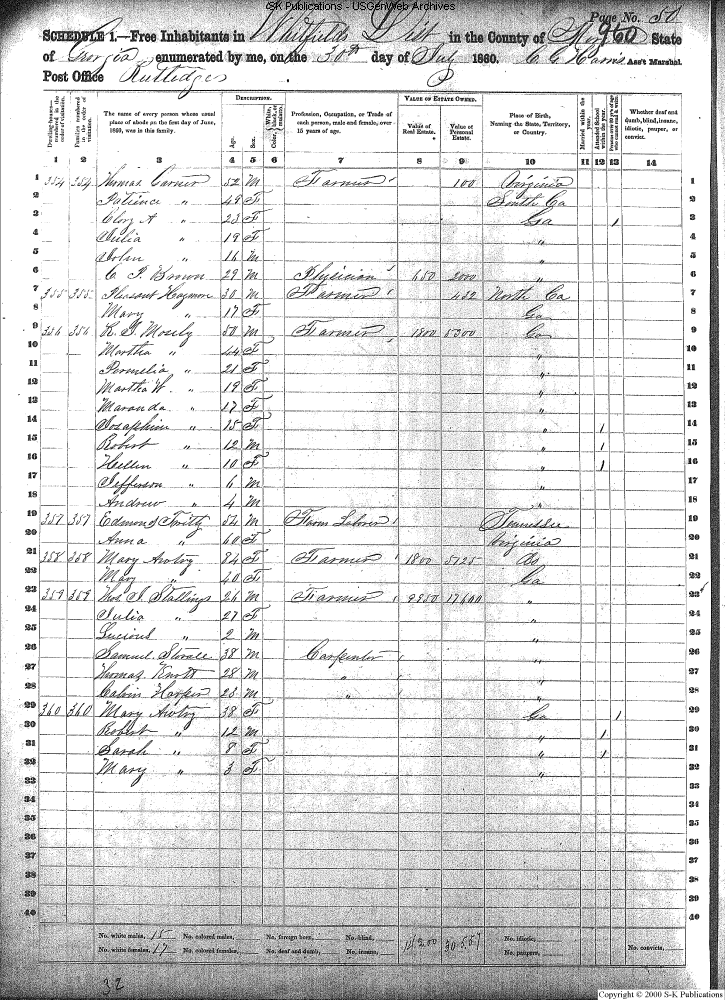 S-K Publications - USGenWeb Archives
Page No. 50
SCHEDULE 1.—Free Inhabitants in Whitfields Dist in the County of 960 State
of Georgia enumerated by me, on the 30th day of July 1860. C C Harris Ass't Marshal.
Post Office Rutledges
DESCRIPTION. VALUE OF ESTATE OWNED.
Dwelling-houses—numbered in the order of visitation.
Families numbered in the order of visitation.
The name of every person whose usual place of abode on the first day of June, 1860, was in this family.
Age.
Sex.
Color, White, black, or mulatto.
Profession, Occupation, or Trade of each person, male and female, over 15 years of age.
Value of Real Estate.
Value of Personal Estate.
Place of Birth, Naming the State, Territory, or Country.
Married within the year.
Attended School within the year.
Whether deaf and dumb, blind, insane, idiotic, pauper, or convict.
1 2 3 4 5 6 7 8 9 10 11 12 13 14
1 354 354 Thomas Carner 52 M Farmer 100 Virginia 1
2 Patience " 49 F South Ca 2
3 Clory A " 23 F Ga 1 3
4 Julia " 19 F " 4
5 John " 16 M " 5
6 C P Brown 29 M Physician 650 2000 " 6
7 355 355 Pleasant Haymon 30 M Farmer 432 North Ca 7
8 Mary " 17 F Ga 8
9 356 356 Mosely 50 M Farmer 1800 5300 Ga 9
10 Martha " 44 F " 10
11 Permelia " 21 F " 11
12 Martha W. " 19 F " 12
13 Maranda " 17 F " 13
14 Josaphine " 15 F " 1 14
15 Robert " 12 M " 1 15
16 Hellen " 10 F " 1 16
17 Jefferson " 6 M " 17
18 Andrew " 4 M " 18
19 357 357 Edmond Twitty 52 M Farm Laborer Tennessee 19
20 Anna " 60 F Virginia 20
21 358 358 Mary Awtry 84 F Farmer 1800 5125 Do 21
22 Mary " 40 F Ga 22
23 359 359 Thos J. Stallings 26 M Farmer 9950 17600 " 23
24 Julia " 27 F " 24
25 Lucious " 2 M " 25
26 Samuel 38 M Carpenter " 26
27 Thomas Knott 28 M " " 27
28 Calvin Harper 23 M " " 28
29 360 360 Mary Awtry 38 F Ga 1 29
30 Robert " 12 M " 1 30
31 Sarah " 8 F " 1 31
32 Mary " 3 F " 32
33 33
34 34
35 35
36 36
37 37
38 38
39 39
40 40
No. white males, 15 No. colored males, No. foreign born, No. blind, 14200 30557 No. idiotic,
No. white females, 17 No. colored females, No. deaf and dumb, No. insane, No. paupers, No. convicts,
32
Copyright © 2000 S-K Publications